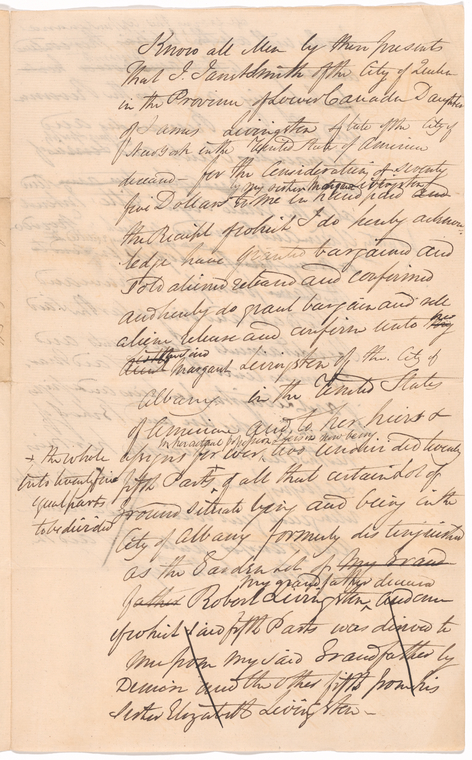 Know all Men by these presents
That I Janet Smith of the City of Quebec
in the Province of Lower Canada Daughter
of James Livingston late of the City of
New York in the United State of America
deceased – for the Consideration of seventy
by my sister Margaret Livingston
five Dollars to me in hand paid and
the Receipt of which I do hereby acknow
ledge have granted bargained and
Sold aliened released and confirmed
and hereby do grant bargain and sell
aliene release and confirm unto my
Margaret Livingston of the City of
Albany in the United States
of America and to her heirs &
in her actual possession now being
assigns for ever, two undivided twenty
+ the whole
into twenty five
equal parts
to be divided
fifth Parts + of all that certain lot of
ground situate lying and being in the
City of Albany formerly distinguished
as the Garden Lot of my Grand
my grandfather deceased
father Robert Livingston, and one
of which said fifth Parts was devised to
me from my said Grandfather by
Demise and the other fifth from his
Sister Elizabeth Livingston –